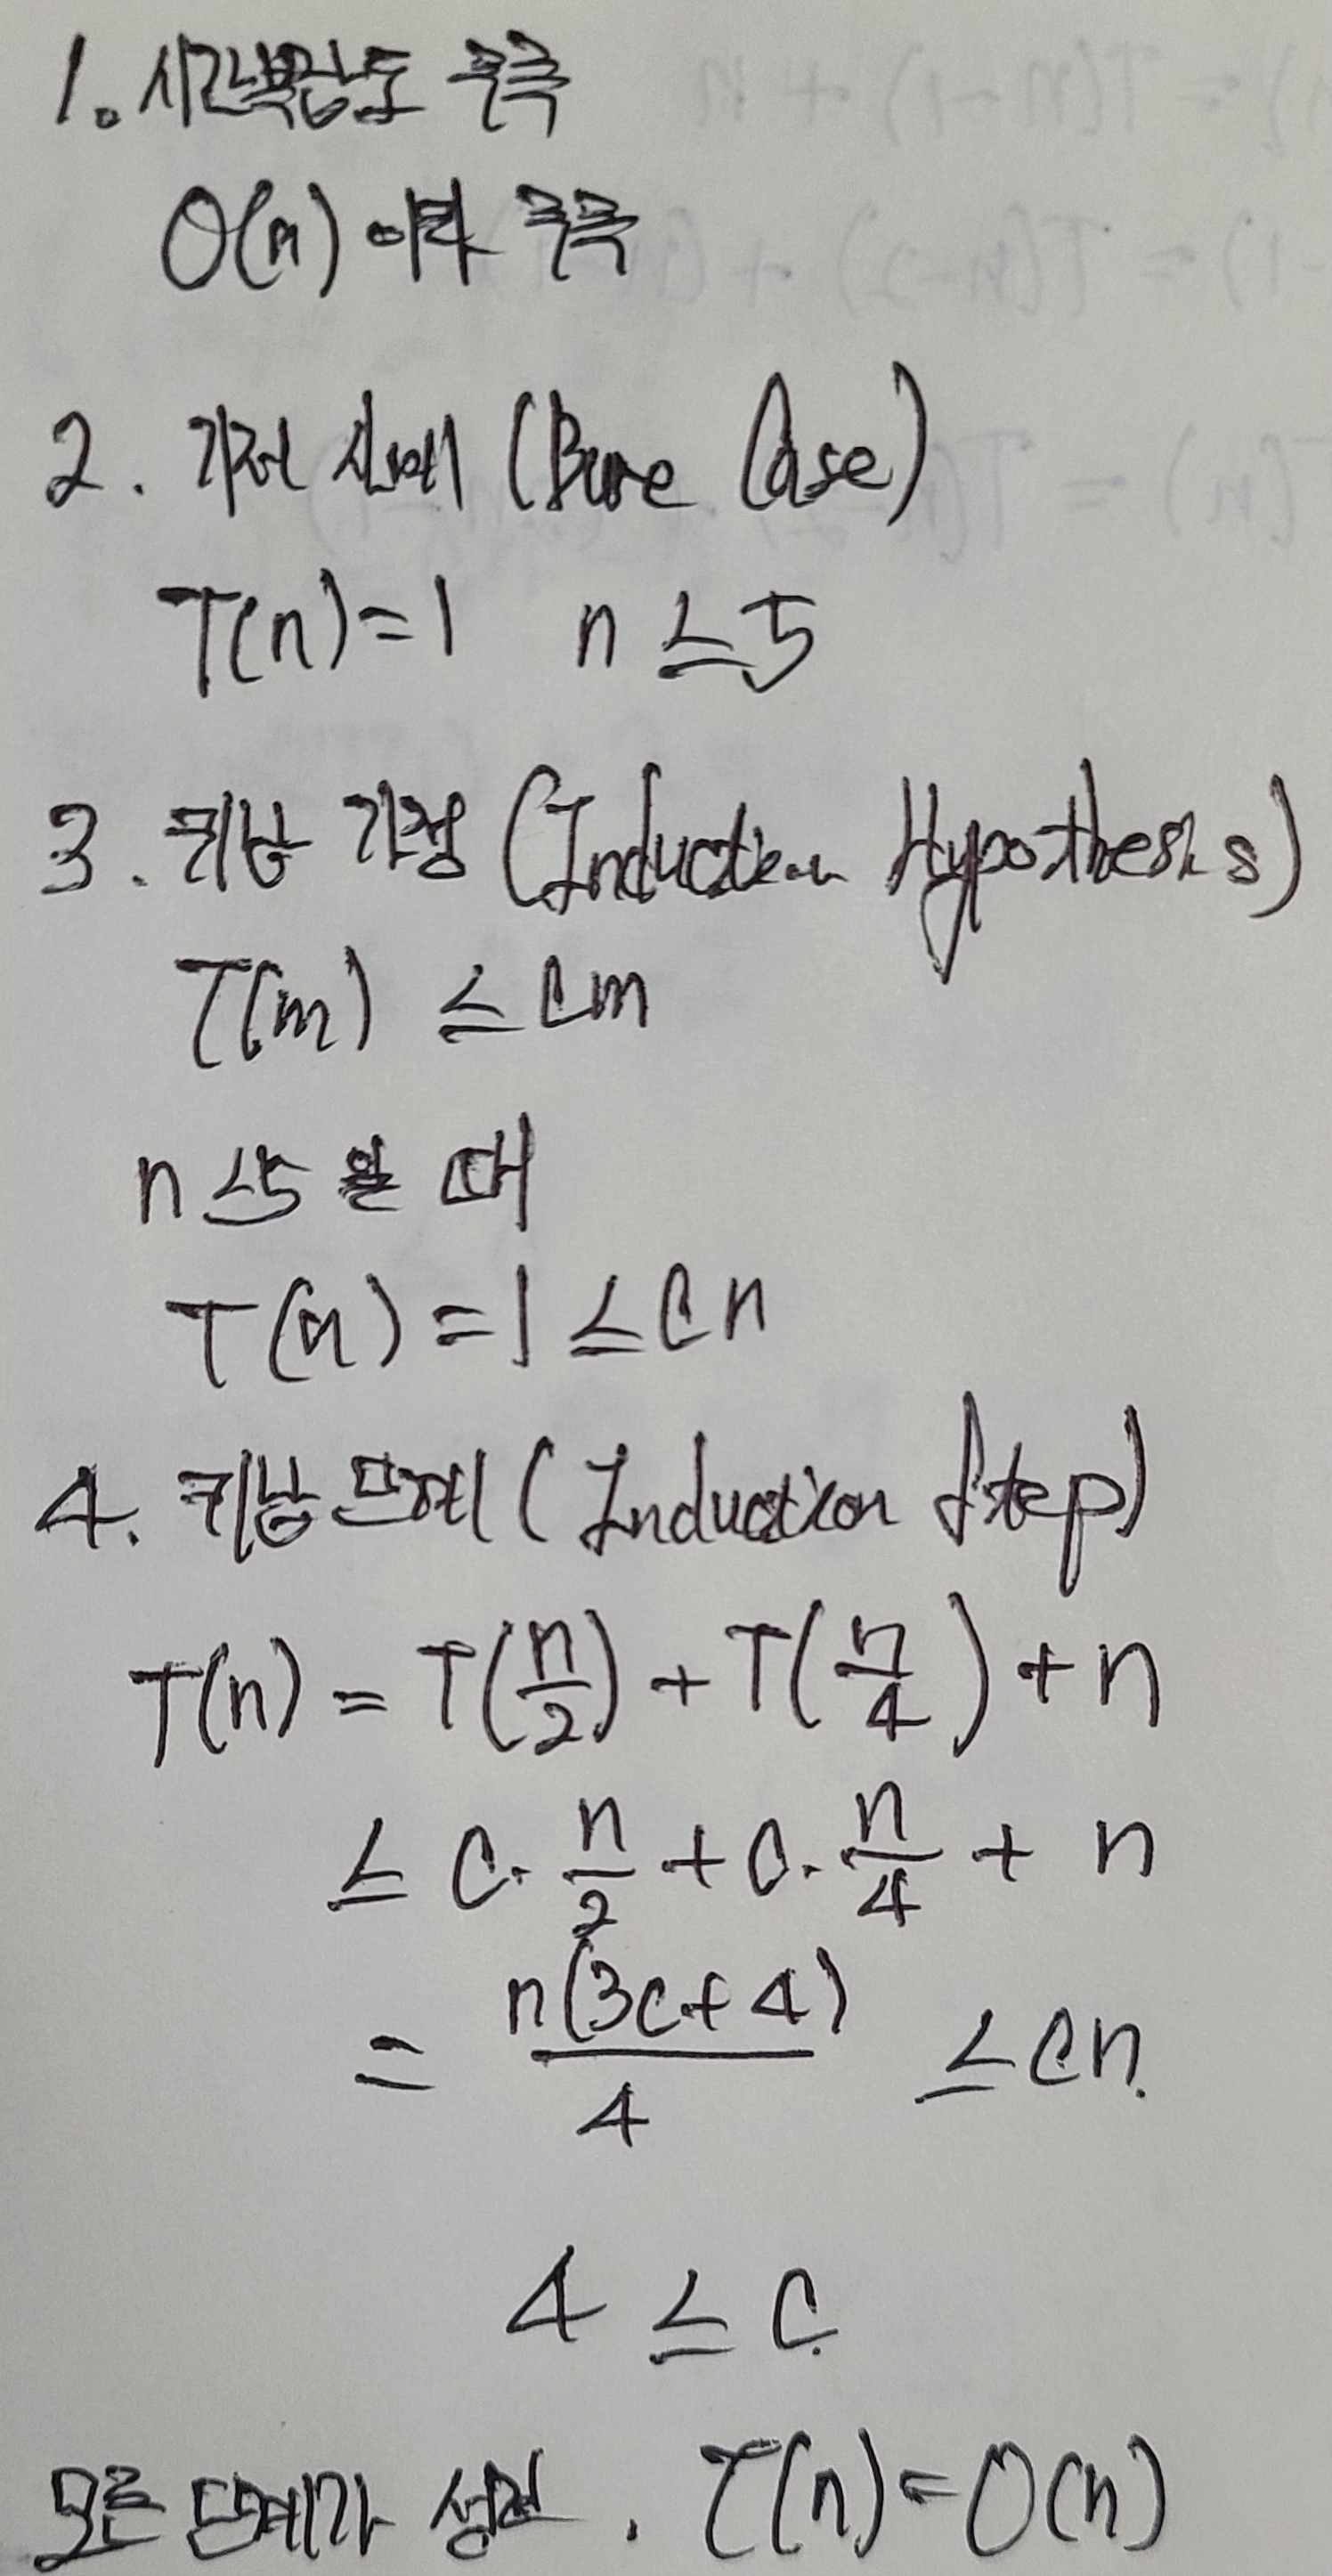 1. 시간복잡도 추측
O(n) 이라 추측
2. 기저 사례 (Base Case)
T(n)=1 n≤5
3. 귀납 가정 (Induction Hypothesis)
T(m) ≤ cm
n≤5 일 때
T(n)=1≤cn
4. 귀납 단계 (Induction Step)
T(n) = T(n/2) + T(n/4) + n
≤ c·n/2 + c·n/4 + n
= n(3c+4)/4 ≤cn.
4 ≤ c.
모든 단계가 성립. T(n)=O(n)